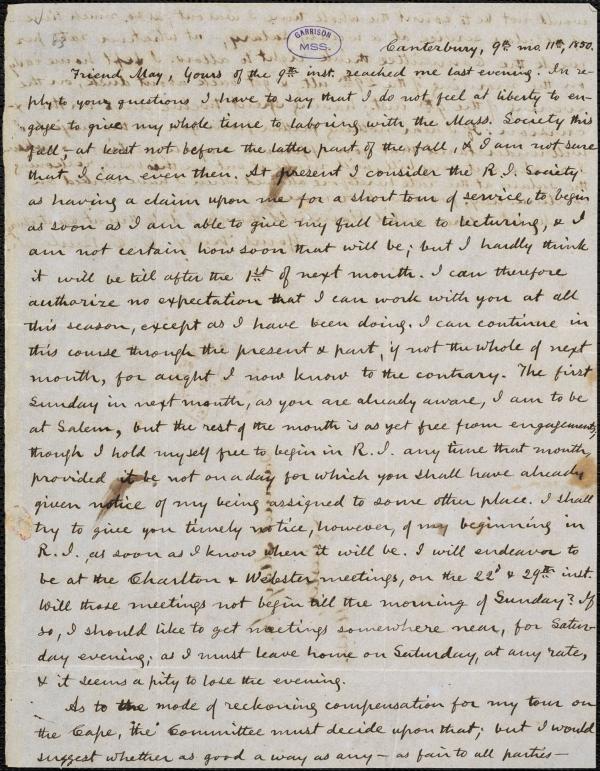 GARRISON
MSS.
Canterbury, 9th mo. 11th, 1850.
Friend May, Yours of the 9th inst. reached me last evening. In re-
ply to your questions I have to say that I do not feel at liberty to en-
gage to give my whole time to laboring with the Mass. Society this
fall,- at least not before the latter part of the fall, & I am not sure
that I can even then. At present I consider the R. I. Society
as having a claim upon me for a short tour of service, to begin
as soon as I am able to give my full time to lecturing, & I
am not certain how soon that will be; but I hardly think
it will be till after the 1st of next month. I can therefore
authorize no expectation that I can work with you at all
this season, except as I have been doing. I can continue in
this course through the present & part, if not the whole of next
month, for aught I now know to the contrary. The first
Sunday in next month, as you are already aware, I am to be
at Salem, but the rest of the month is as yet free from engagements,
though I hold myself free to begin in R. I. any time that month,
provided it be not on a day for which you shall have already
given notice of my being assigned to some other place. I shall
try to give you timely notice, however, of my beginning in
R. I., as soon as I know when it will be. I will endeavor to
be at the Charlton & Webster meetings, on the 22d & 29th inst.
Will those meetings not begin till the morning of Sunday? If
so, I should like to get meetings somewhere near, for Satur-
day evening; as I must leave home on Saturday, at any rate,
& it seems a pity to lose the evening.
As to the mode of reckoning compensation for my tour on
the Cape, the Committee must decide upon that; but I would
suggest whether as good a way as any — as fair to all parties —